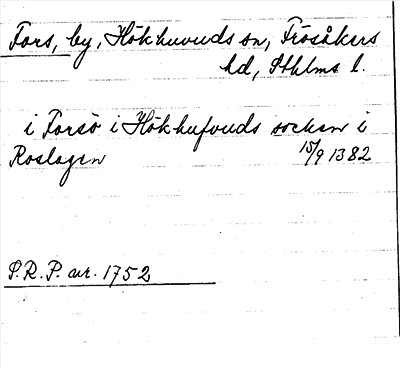 Fors, by, Hökhuvuds sn, Frösåkers
hd, Sthlms l.
i Forsö i Hökhufvuds socken i
Roslagen 15/9 1382
S.R.P. nr. 1752